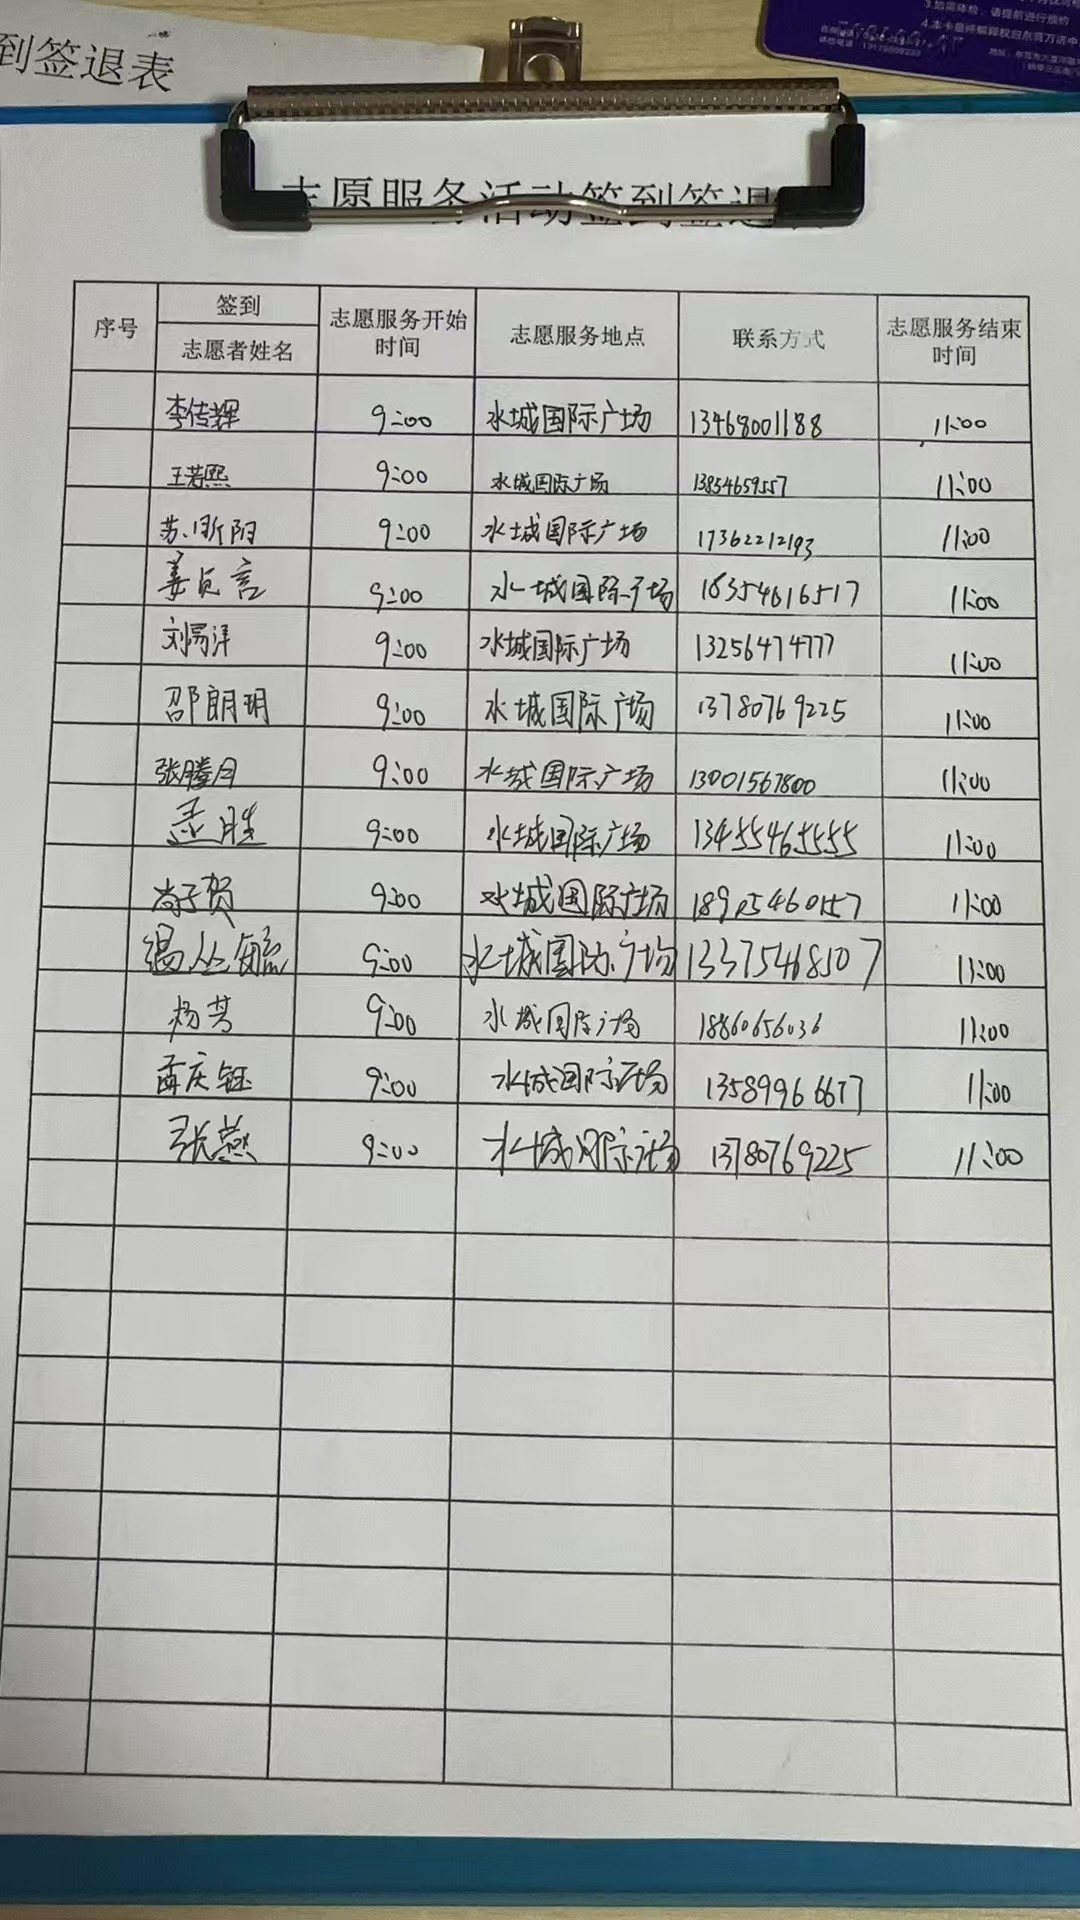 到签退表
3.如需体检，请提前进行预约
志愿服务活动签到签退表
序号 签到 志愿者姓名 志愿服务开始时间 志愿服务地点 联系方式 志愿服务结束时间
李传辉 9:00 水城国际广场 13468001188 11:00
王若熙 9:00 水城国际广场 13854659557 11:00
苏昕阳 9:00 水城国际广场 17362212193 11:00
姜贞言 9:00 水城国际广场 18354616517 11:00
刘易洋 9:00 水城国际广场 13256474777 11:00
邵朗玥 9:00 水城国际广场 13780769225 11:00
张腾月 9:00 水城国际广场 13001567800 11:00
孟胜 9:00 水城国际广场 13455465555 11:00
尚子贺 9:00 水城国际广场 11:00
温丛毓 9:00 水城国际广场 13375468507 11:00
杨芳 9:00 水城国际广场 18860656036 11:00
孟庆钰 9:00 水城国际广场 13589966677 11:00
张燕 9:00 水城国际广场 13780769225 11:00